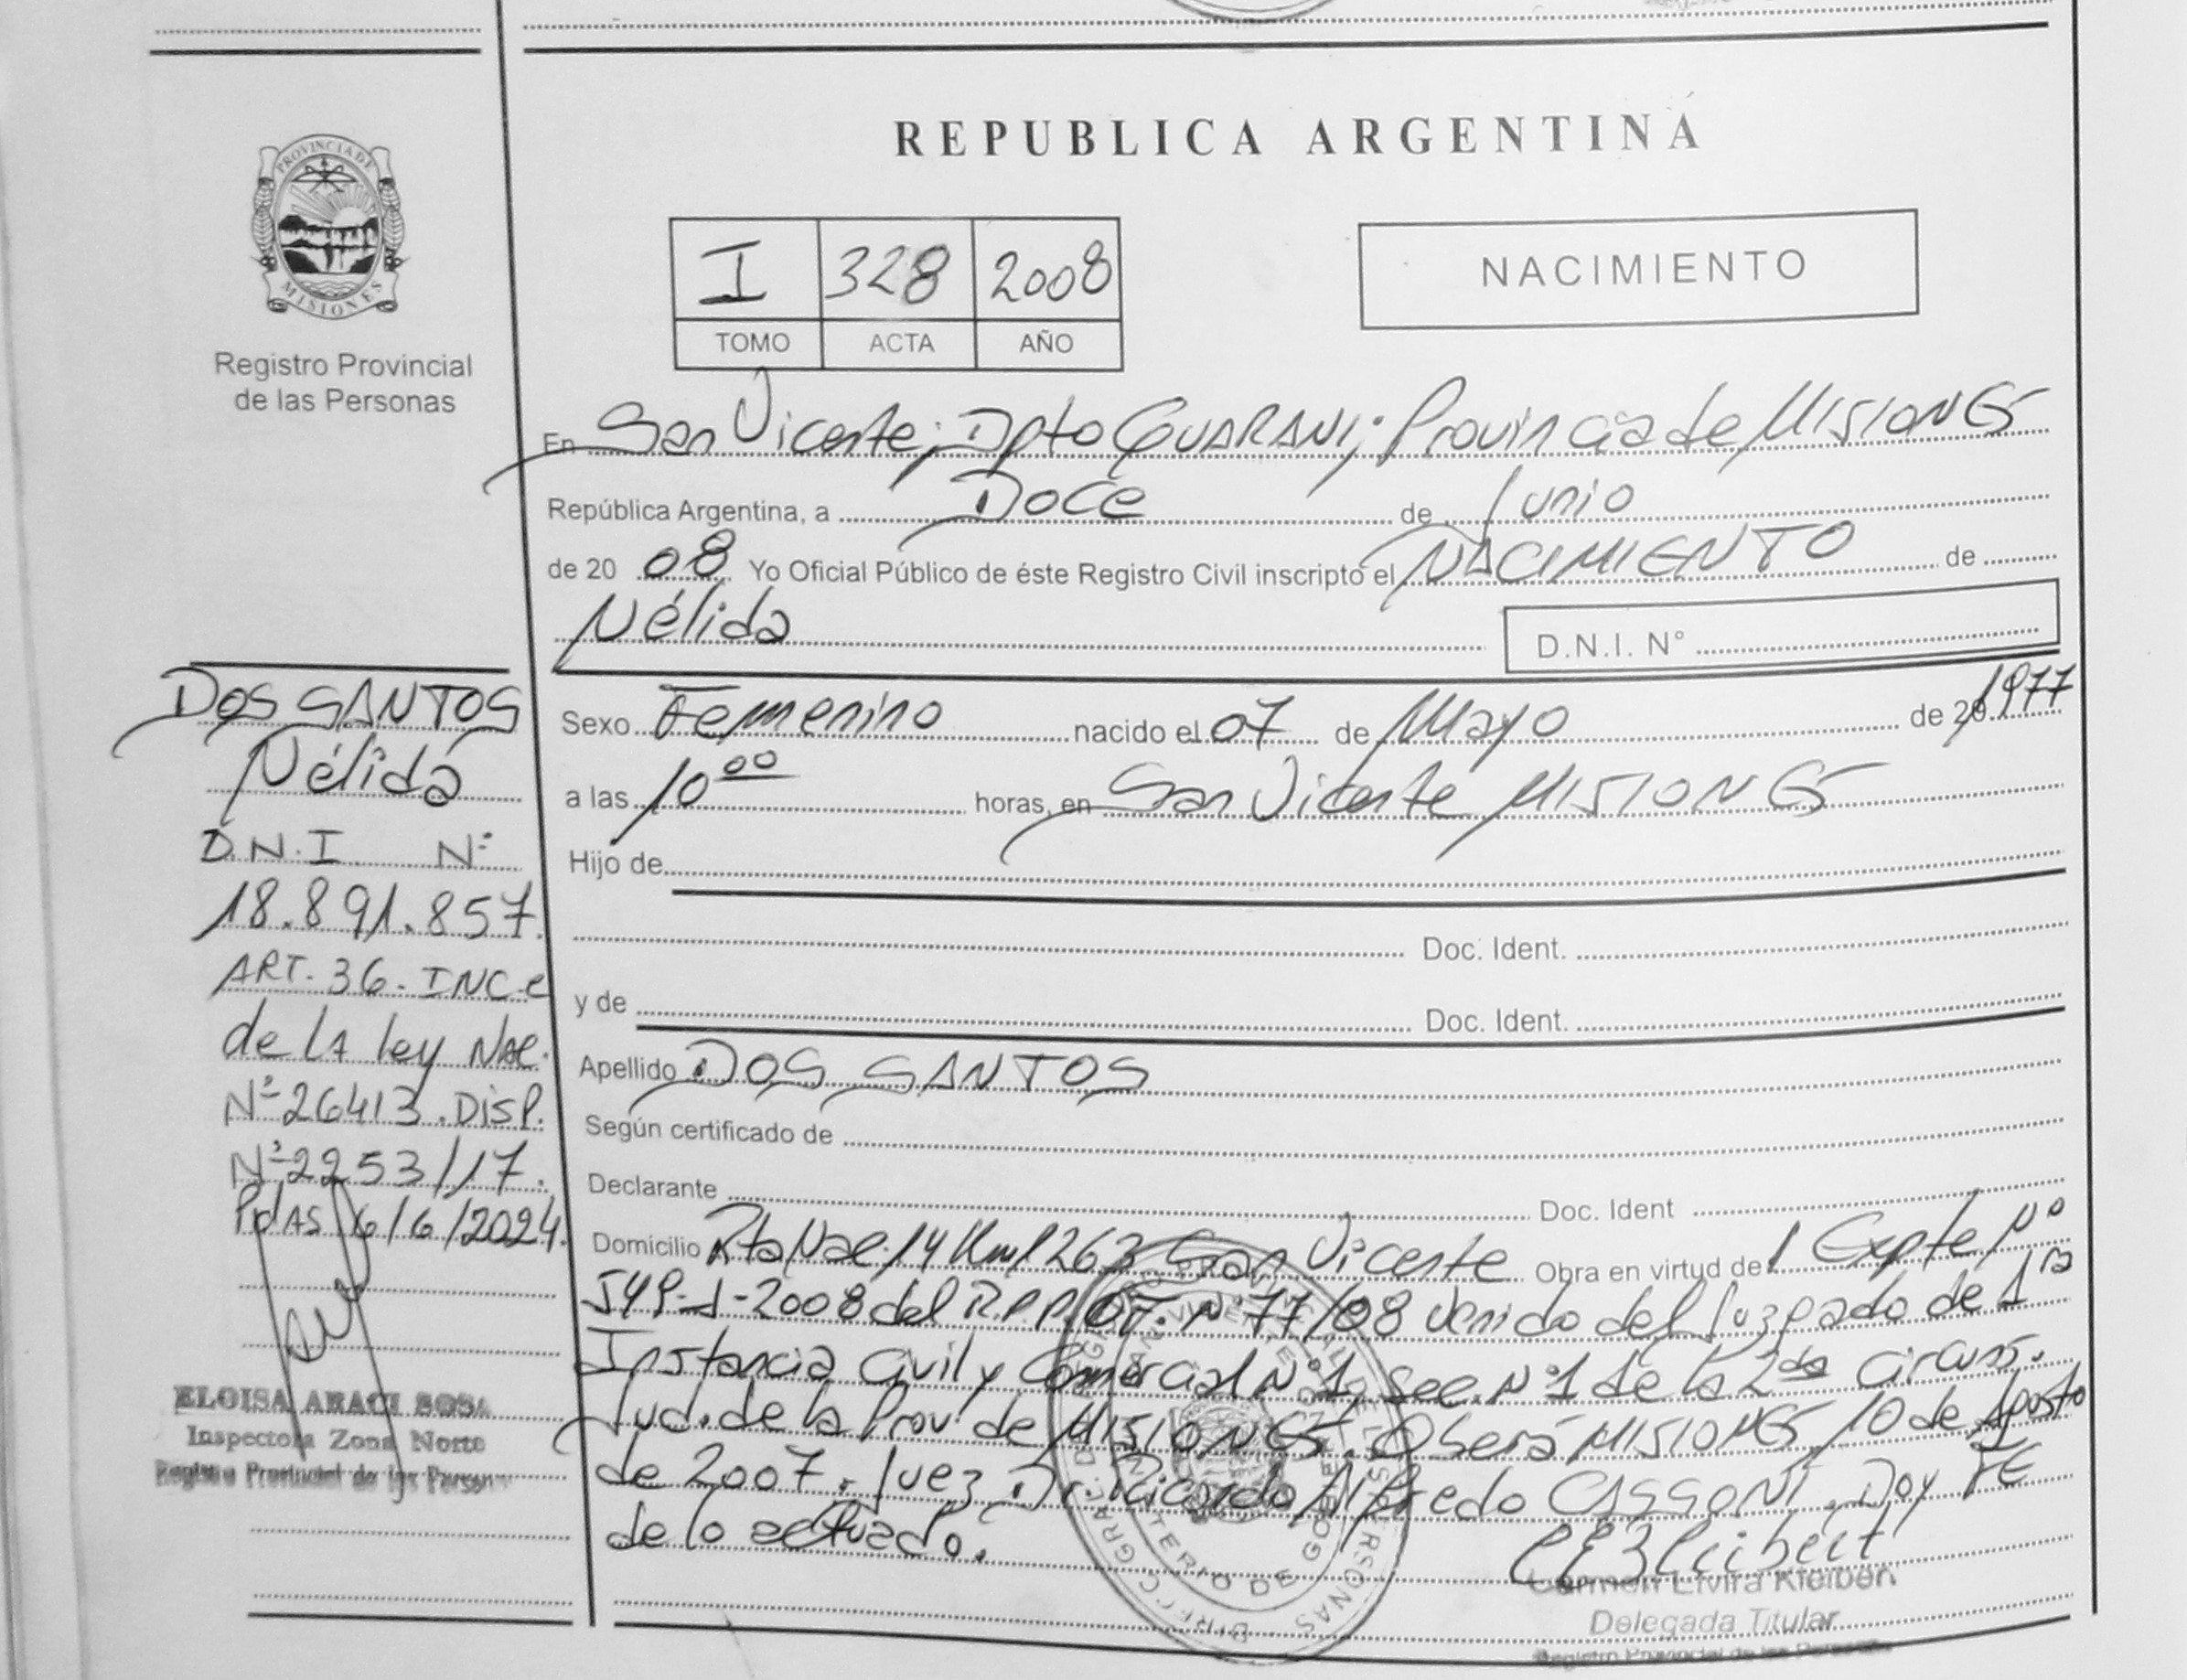 REPUBLICA ARGENTINA
PROVINCIA DE
MISIONES
Registro Provincial
de las Personas
I 328 2008
TOMO ACTA AÑO
NACIMIENTO
En San Vicente; Dpto GUARANI; Provincia de MISIONES
República Argentina, a Doce de Junio
de 20 08 Yo Oficial Público de éste Registro Civil inscripto el NACIMIENTO de
Nélida
D.N.I. N°
Sexo Femenino nacido el 07 de Mayo de 20 1977
a las 10 00 horas, en San Vicente MISIONES
Hijo de
Doc. Ident.
y de Doc. Ident.
Apellido DOS SANTOS
Según certificado de
Declarante Doc. Ident
Domicilio Rta Nac. 14 Km 1263 San Vicente Obra en virtud de 1 Expte Nº
-2008 del R.P.P. OF. Nº 77/08 Venido del Juzgado de 1ra
Instancia Civil y Comercial Nº 1, Sec. Nº 1 de la 2da Circuns.
Jud. de la Prov. de MISIONES. Oberá MISIONES, 10 de Agosto
de 2007. Juez Dr. Ricardo Alfredo CASSONI. Doy FE
de lo actuado.
Carmen Elvira Kleibert
Delegada Titular
Registro Provincial de las Personas
DOS SANTOS
Nélida
D.N.I Nº
18.891.857.
ART. 36. INC. c
de LA ley Nac.
Nº 26413. DISP.
Nº 2253/17.
PDAS 6/6/2024.
ELOISA ARACI SOSA
Inspectora Zona Norte
Registro Provincial de las Personas